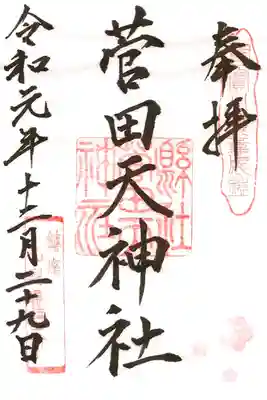 奉拝
菅田天神社
令和元年十二月二十九日
縣社